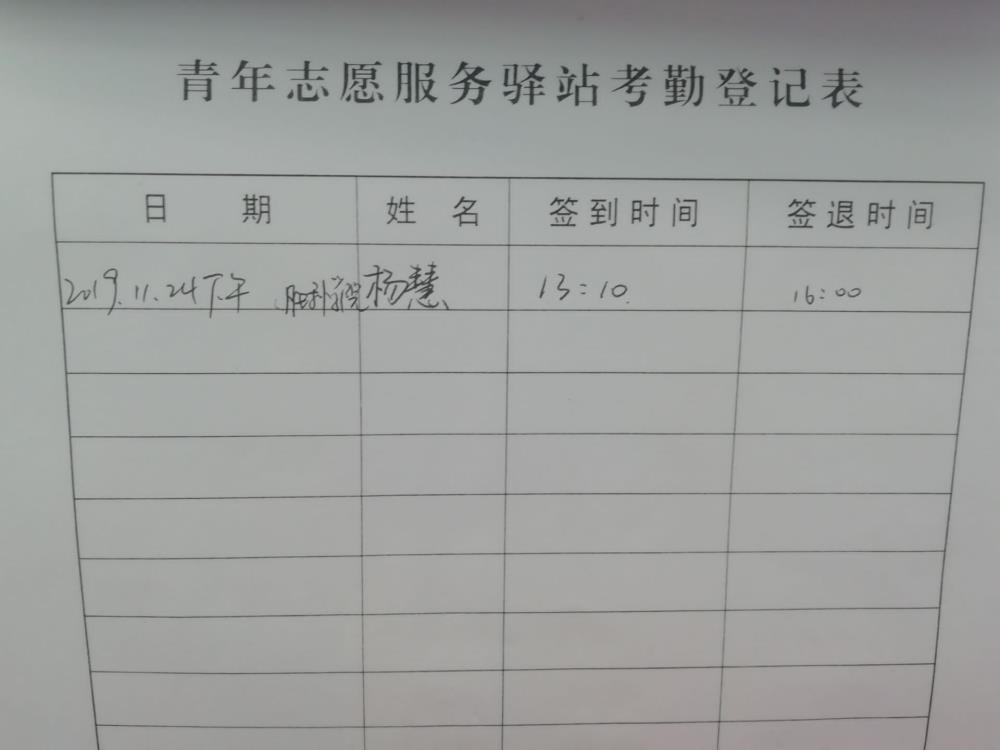 青年志愿服务驿站考勤登记表
日 期 姓 名 签到时间 签退时间
2019.11.24下午 学院杨慧 13:10 16:00